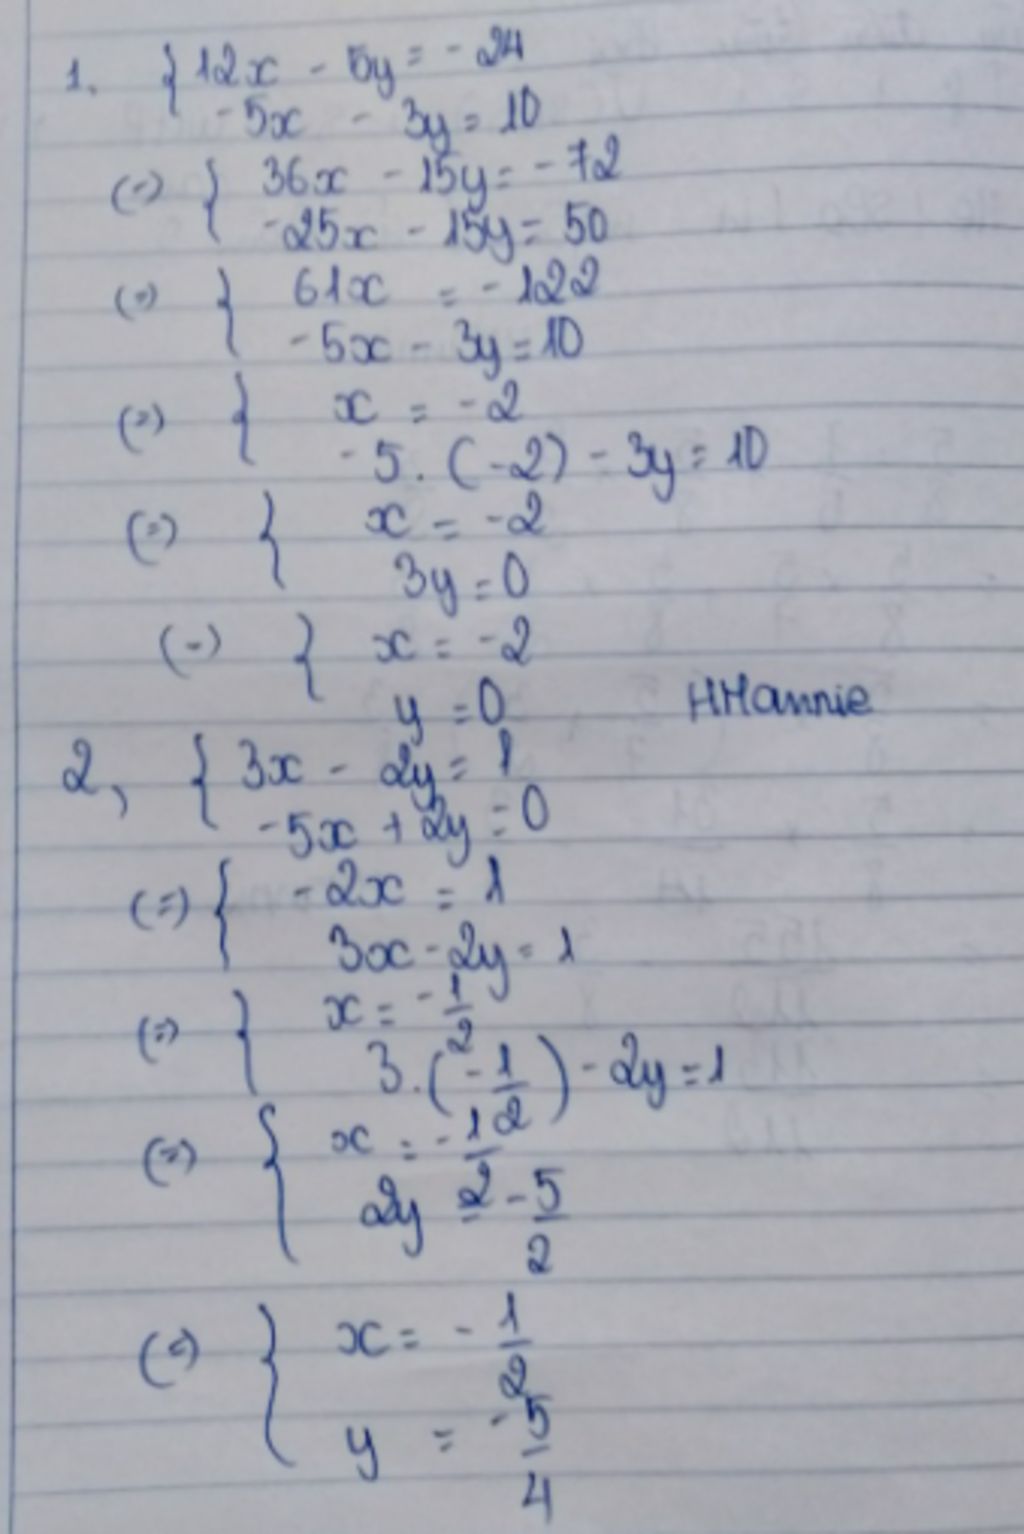 1. { 12x - 5y = - 24
- 5x - 3y = 10
(=) { 36x - 15y = - 72
- 25x - 15y = 50
(=) { 61x = - 122
- 5x - 3y = 10
(=) { x = - 2
- 5 . ( - 2 ) - 3y = 10
(=) { x = - 2
3y = 0
(=) { x = - 2
y = 0
HHannie
2, { 3x - 2y = 1
- 5x + 2y = 0
(=) { - 2x = 1
3x - 2y = 1
(=) { x = - 1/2
3 . ( - 1/2 ) - 2y = 1
(=) { x = - 1/2
2y = - 5/2
(=) { x = - 1/2
y = - 5/4